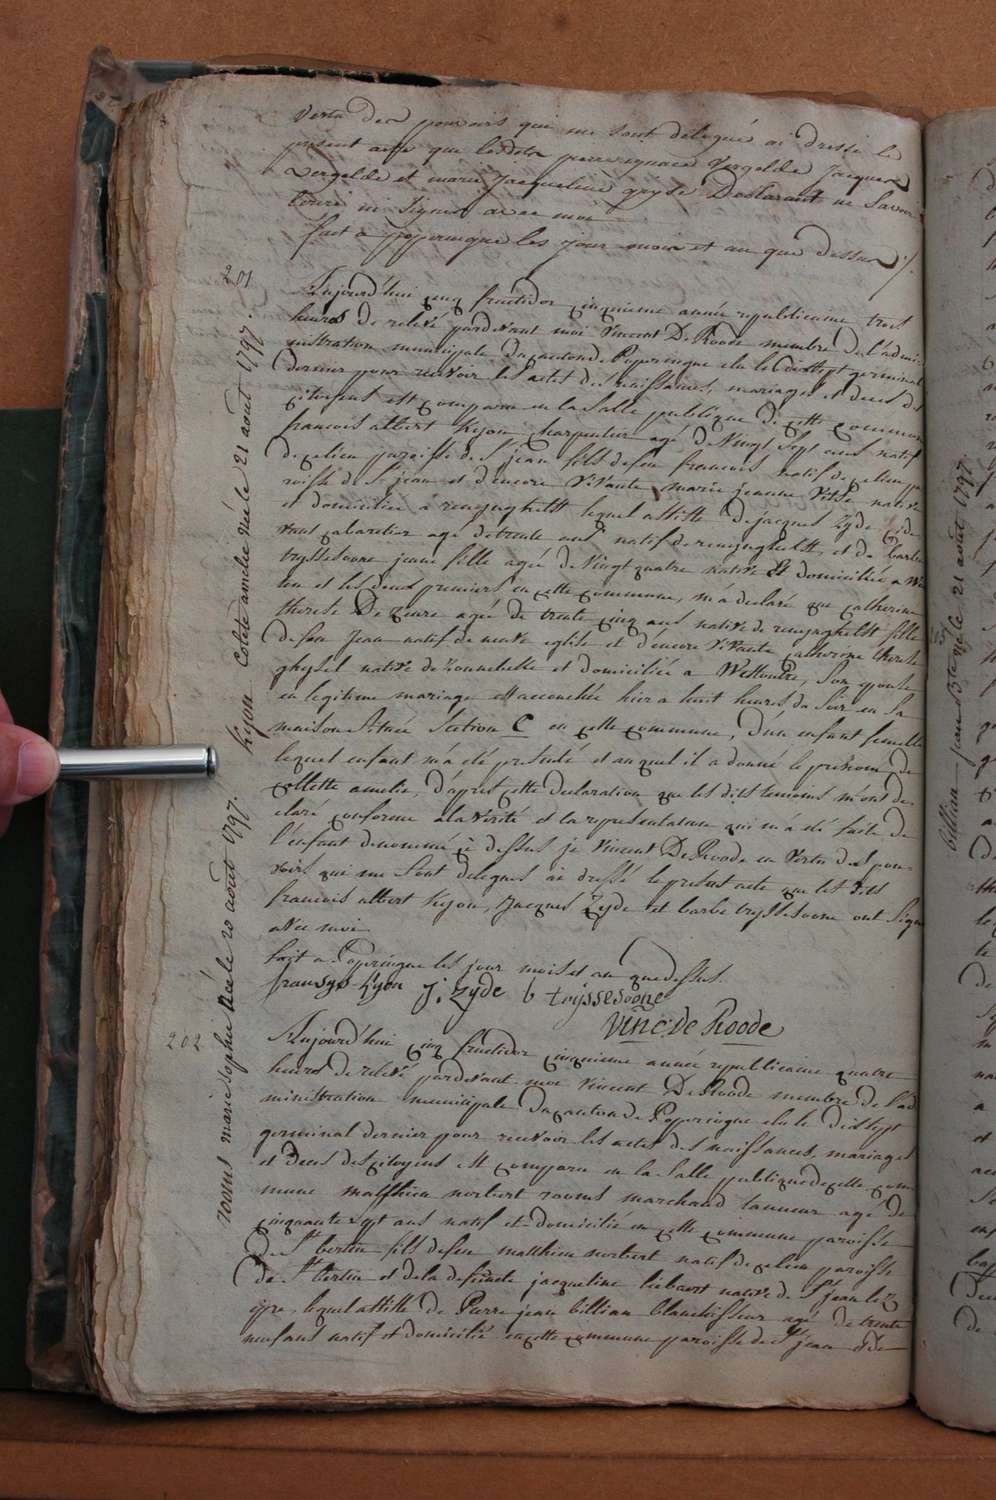 vertu des pouvoirs qui me sont delegué ai dressé le
présent acte que lesdits pierre ignace Vergelde Jacques
Vergelde et marie Jacqueline gryse Declarant ne savoir
ecrire ni signer avec moi
fait a poperingue les jour mois et an que dessus ./.
201
Kyon Colete amelie née le 21 aout 1797.
Aujourd'hui cinq fructidor cinquieme année republicaine trois
heures de relevé pardevant moi Vincent De Roode membre de l'admi-
nistration municipale du canton de Poperingue elu le dixsept germinal
dernier pour recevoir les actes des naissances, mariages et deces des
citoyens est comparu en la salle publique de cette commune
francois albert Kyon charpentier agé de vingt sept ans natif
de ce lieu paroisse de St jean fils de feu francois natif de ce lieu pa
roisse de St jean et d'encore vivante marie jeanne Vitse native
et domiciliée à renynghelst lequel assisté de jacques Zyde
vant cabaretier agé de trente ans natif de renynghelst, et de barbe
tryssesoone jeune fille agée de vingt quatre native et domiciliée a
et les deux premiers en cette commune, m'a declaré que catherine
therese De agée de trente cinq ans native de renynghelst fille
de feu jean natif de neuve eglise et d'encore vivante catherine therese
ghysel native de zonnebeke et domiciliée a Westoutre, son epouse
en legitime mariage est accouchée hier a huit heures du soir en sa
maison située section C en cette commune, d'un enfant femelle
lequel enfant m'a été présenté et auquel il a donné le prénom de
collette amelie, d'après cette declaration que les dits temoins m'ont de-
claré conforme a la vérité et la representation qui m'a été faite de
l'enfant denommé ci dessus je Vincent De Roode en vertu des pou-
voirs qui me sont delegues ai dressé le présent acte que les dits
francois albert Kyon, Jacques Zyde et barbe tryssesoone ont signé
avec moi
fait a Poperingue les jour mois et an que dessus.
fransys Kyon J. Zyde b tryssesoone
Vinc: De Roode
202
rooms marie sophie née le 20 août 1797.
Aujourd'hui cinq fructidor cinquieme année republicaine quatre
heures de relevé pardevant moi Vincent De Roode membre de l'ad
ministration municipale du canton de Poperingue elu le dixsept
germinal dernier pour recevoir les actes des naissances, mariages
et deces des citoyens est comparu en la salle publique de cette com-
mune matthieu norbert rooms marchand tanneur agé de
cinquante sept ans natif et domicilié en cette commune paroisse
De St bertin fils de feu matthieu norbert natif de ce lieu paroisse
de St bertin et de la defuncte jacqueline liebaert native de St jean lez
ipre, lequel assisté de Pierre jean billiau blanchisseur agé de trente
neuf ans natif et domicilié en cette commune paroisse de St jean et de
billiau jean Bte né le 21 août 1797.